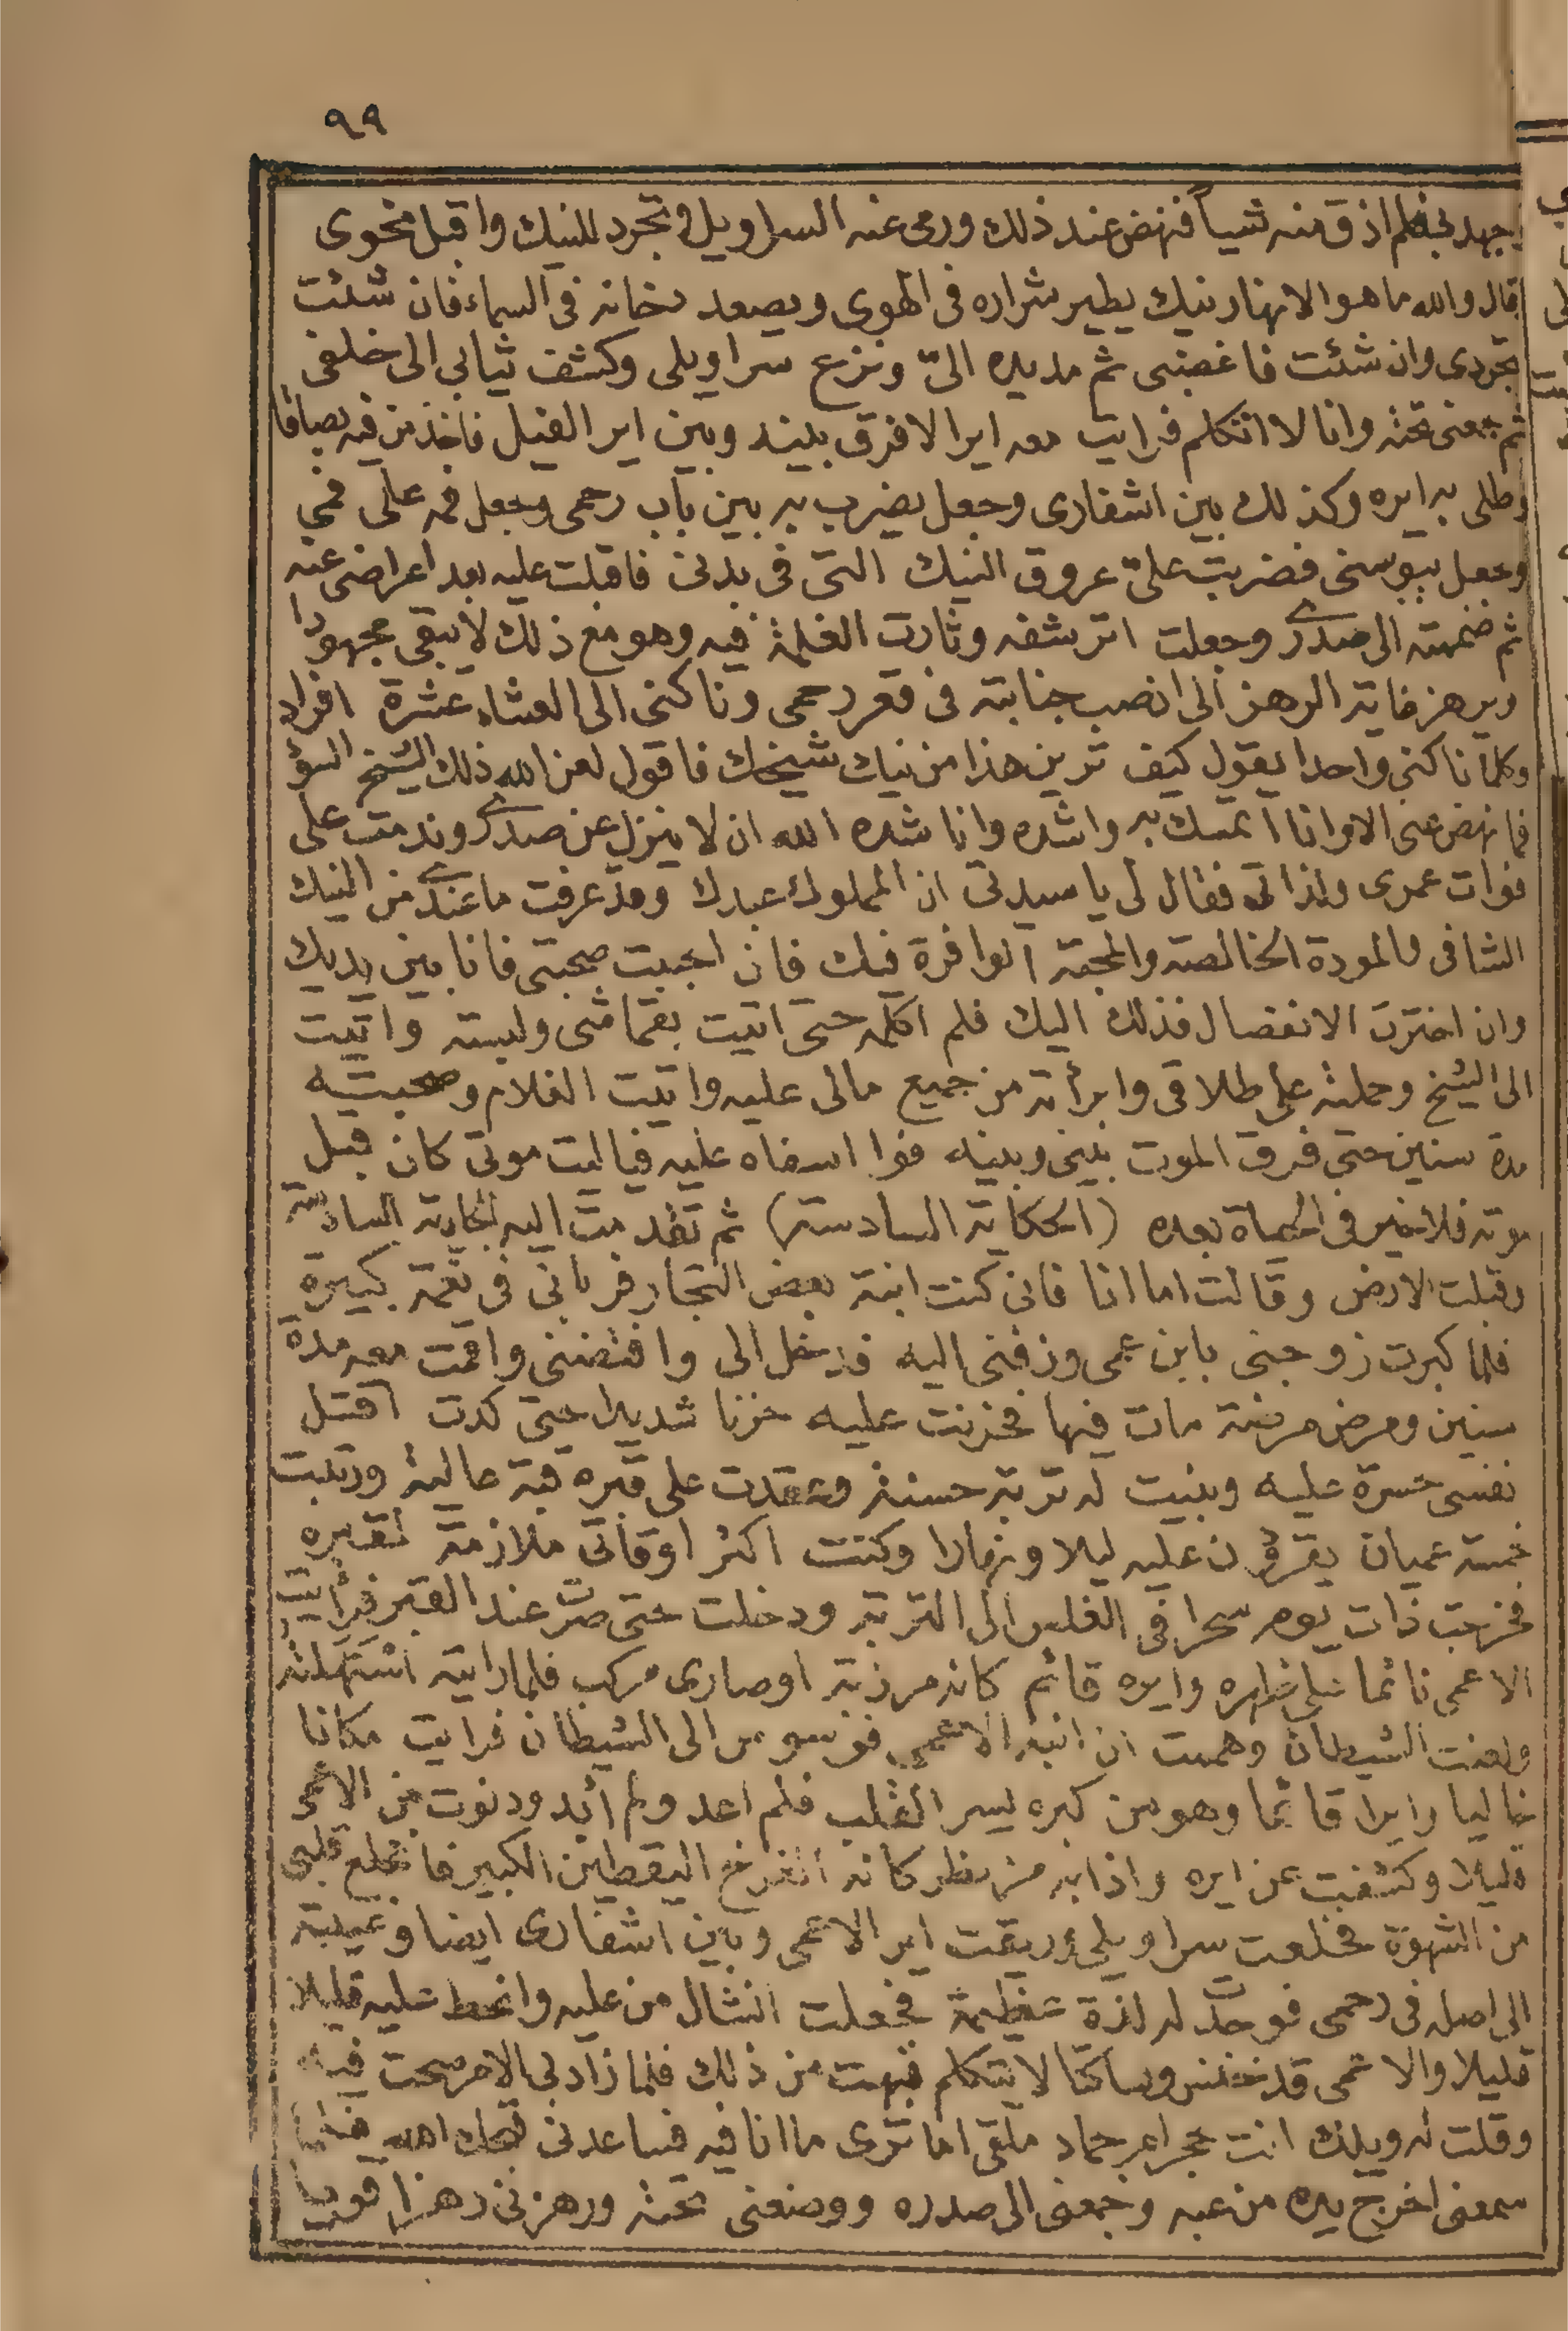 ٩٩
يجهد بى فلم اذق منه شيأ فنهض عند ذلك ورمى عنه السراويل وتجرد للنيك واقبل نحوى
قال والله ما هو الا نهار نيك يطير شراره فى الهوى ويصعد دخانه فى السماء فان شئت
تجردى وان شئت فاغضبى ثم مد يده الىّ ونزع سراويلى وكشف ثيابى الى خلفى
ثم جمعنى تحته وانا لا اتكلم فرايت معه ايرا لا فرق بينه وبين اير الفيل فاخذ من فيه بصاقا
وطلى به ايره وكذلك بين اشفارى وجعل يضرب به بين باب رحمى وجعل فمه على فمى
وجعل يبوسنى فضربت علىّ عروق النيك التى فى بدنى فاقبلت عليه بعد اعراضى عنه
ثم ضممته الى صدرى وجعلت اترشفه وثارت الغلمة فيه وهو مع ذلك لا يبقى مجهودا
ويرهز غاية الرهز الى ان صب جنابته فى قعر رحمى وناكنى الى العشاء عشرة افراد
وكلما ناكنى واحدا يقول كيف ترين هذا من نيك شيخك فاقول لعن الله ذلك الشيخ السؤ
فما نهض عنى الا وانا اتمسك به واشده واناشده الله ان لا ينزل عن صدرى وندمت على
فوات عمرى ولذاتى فقال لى يا سيدتى ان المملوك عبدك وقد عرفت ما عندى من النيك
الشافى والمودة الخالصة والمحبة الوافرة فيك فان احببت صحبتى فانا بين يديك
وان اخترت الانفصال فذلك اليك فلم اكلمه حتى اتيت بقماشى ولبسته واتيت
الى الشيخ وحملته على طلاقى وابرأته من جميع مالى عليه واتيت الغلام وصحبته
مدة سنين حتى فرق الموت بينى وبينه فوا اسفاه عليه فياليت موتى كان قبل
موته فلا خير فى الحياة بعده (الحكاية السادسة) ثم تقدمت اليه الجارية السادسة
وقبلت الارض وقالت اما انا فانى كنت ابنة بعض التجار فربانى فى نعمة كبيرة
فلما كبرت زوجنى بابن عمى وزفنى اليه فدخل الى وافتضنى واقمت معه مدة
سنين ومرض مرضة مات فيها فحزنت عليه حزنا شديدا حتى كدت اقتل
نفسى حسرة عليه وبنيت له تربة حسنة وعقدت على قبره قبة عالية ورتبت
خمسة عميان يقرؤن عليه ليلا ونهارا وكنت اكثر اوقاتى ملازمة لقبره
فخرجت ذات يوم سحرا فى الغلس الى التربة ودخلت حتى صرت عند القبر فرأيت
الاعمى نائما على ظهره وايره قائم كانه مرزبة او صارى مركب فلما رايته استهلته
ولعنت الشيطان وهممت ان انبه الاعمى فوسوس الى الشيطان فرايت مكانا
خاليا وايرا قائما وهو من كبره يسر القلب فلم اعد ولم أبد ودنوت من الاعمى
قليلا وكشفت عن ايره واذا به كانه القرع اليقطين الكبير فانخلع قلبى
من الشهوة فخلعت سراويلى وريقت اير الاعمى وبين اشفارى ايضا وغيبته
الى اصله فى رحمى فوجدت له لذة عظيمة فجعلت انشال من عليه وانحط عليه قليلا
قليلا والاعمى قد خنس وساكتا لا يتكلم فبهت من ذلك فلما زاد بى الامر صحت فيه
وقلت له ويلك انت حجر ام جماد ملقى اما ترى ما انا فيه فساعدنى قبحك الله فلما
سمعنى اخرج يده من عبه وجمعنى الى صدره ووضعنى تحته ورهزنى رهزا قويا